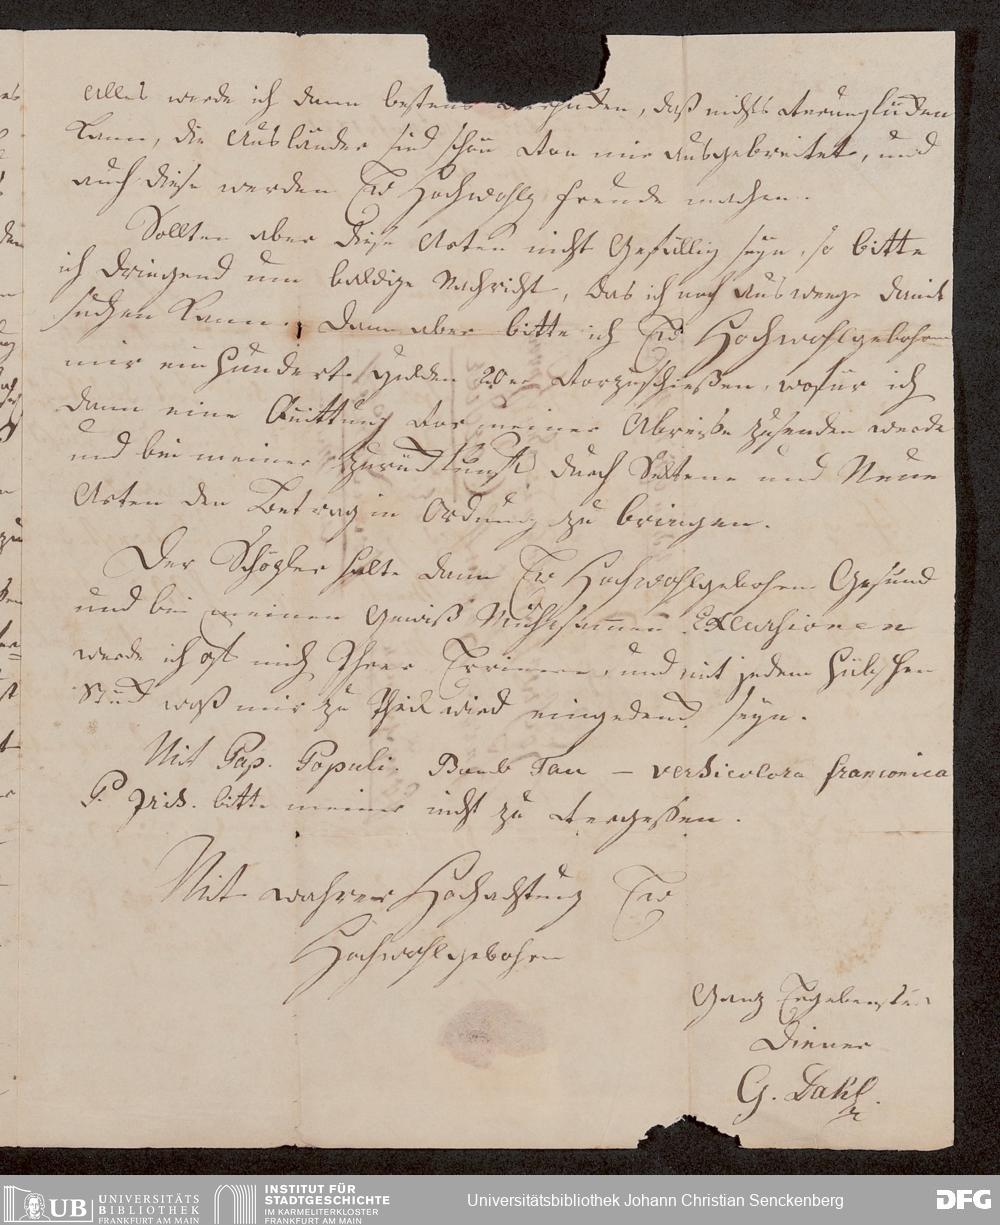 Alles werde ich dann bestens versenden, daß nichts verunglücken
kann, die Ausländer sind schon von mir ausgebreitet, und
auch diese werden Ew Hochwohlg freude machen.
Sollten aber diese Arten nicht Gefällig seyn, so bitte
ich dringend um baldige Nachricht, das ich noch auswerge damit
suchen kann. Dann aber bitte ich Ew Hochwohlgebohren
mir ein Hundert Gulden 20er vorzuschießen, wofür ich
dann eine Quittung vor meiner Abreise zusenden werde
und bei meiner zurückkunft durch Seltene und Neue
Arten den Betrag in Ordnung zu bringen.
Der Schöpfer halte dann Ew Hochwohlgebohren Gesund
und bei meinen Gewiß Mühsamen Excursionen
werde ich oft mich Ihrer Errinern, und mit jedem Hübschen
Stück waß mir zu Theil wird eingedenk seyn.
Mit Pap. Populi. Bomb Tau – versicolora franconica
G. Pris. bitte meiner nicht zu vergessen.
Mit wahrer Hochachtung Ew
Hochwohlgebohren
Ganz Ergebenster
Diener
G. Dahl.
UB UNIVERSITÄTS
BIBLIOTHEK
FRANKFURT AM MAIN
INSTITUT FÜR
STADTGESCHICHTE
IM KARMELITERKLOSTER
FRANKFURT AM MAIN
Universitätsbibliothek Johann Christian Senckenberg
DFG